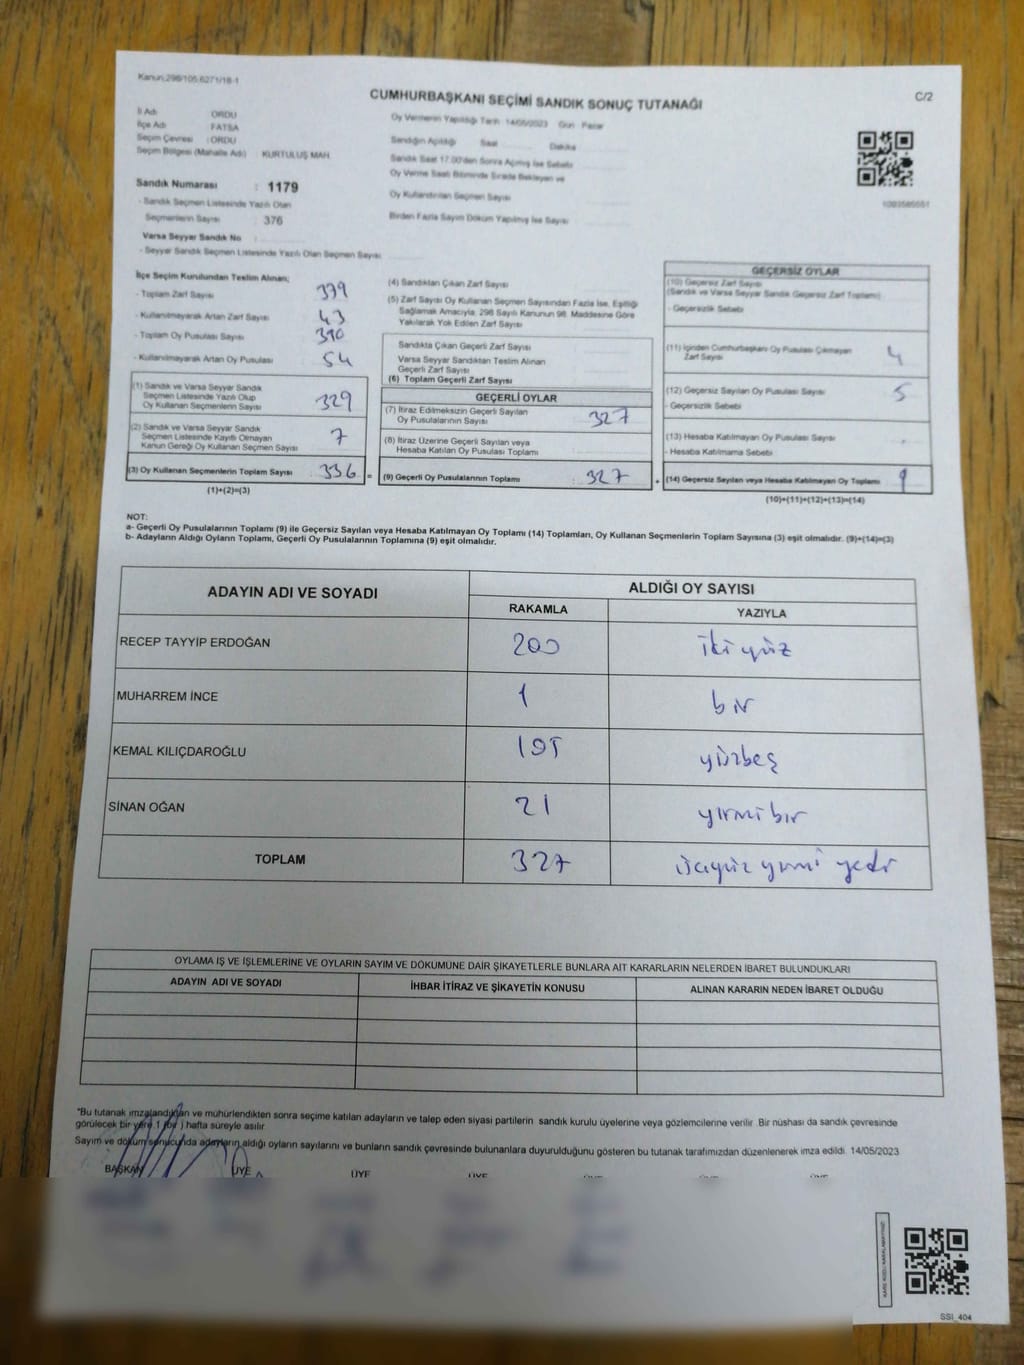 Kanun:298/105,6271/18-1
CUMHURBAŞKANI SEÇİMİ SANDIK SONUÇ TUTANAĞI
C/2
İl Adı ORDU
İlçe Adı FATSA
Seçim Çevresi : ORDU
Seçim Bölgesi (Mahalle Adı) : KURTULUŞ MAH.
Sandık Numarası : 1179
- Sandık Seçmen Listesinde Yazılı Olan
Seçmenlerin Sayısı : 376
Varsa Seyyar Sandık No :
- Seyyar Sandık Seçmen Listesinde Yazılı Olan Seçmen Sayısı
Oy Vermenin Yapıldığı Tarih 14/05/2023 Gün Pazar
Sandığın Açıldığı Saat Dakika
Sandık Saat 17.00'den Sonra Açılmış İse Sebebi
Oy Verme Saati Bitiminde Sırada Bekleyen ve
Oy Kullandırılan Seçmen Sayısı
Birden Fazla Sayım Döküm Yapılmış İse Sayısı
İlçe Seçim Kurulundan Teslim Alınan;
- Toplam Zarf Sayısı 379
- Kullanılmayarak Artan Zarf Sayısı 43
- Toplam Oy Pusulası 390
- Kullanılmayarak Artan Oy Pusulası 54
(1) Sandık ve Varsa Seyyar Sandık
Seçmen Listesinde Yazılı Olup
Oy Kullanan Seçmenlerin Sayısı 329
(2) Sandık ve Varsa Seyyar Sandık
Seçmen Listesinde Kayıtlı Olmayan
Kanun Gereği Oy Kullanan Seçmen Sayısı 7
(3) Oy Kullanan Seçmenlerin Toplam Sayısı 336 =
(1)+(2)=(3)
(4) Sandıktan Çıkan Zarf Sayısı
(5) Zarf Sayısı Oy Kullanan Seçmen Sayısından Fazla İse, Eşitliği
Sağlamak Amacıyla, 298 Sayılı Kanunun 98. Maddesine Göre
Yakılarak Yok Edilen Zarf Sayısı
Sandıkta Çıkan Geçerli Zarf Sayısı
Varsa Seyyar Sandıktan Teslim Alınan
Geçerli Zarf Sayısı
(6) Toplam Geçerli Zarf Sayısı
GEÇERLİ OYLAR
(7) İtiraz Edilmeksizin Geçerli Sayılan
Oy Pusulalarının Sayısı : 327
(8) İtiraz Üzerine Geçerli Sayılan veya
Hesaba Katılan Oy Pusulası Toplamı
(9) Geçerli Oy Pusulalarının Toplamı : 327 +
GEÇERSİZ OYLAR
(10) Geçersiz Zarf Sayısı
(Sandık ve Varsa Seyyar Sandık Geçersiz Zarf Toplamı)
- Geçersizlik Sebebi
(11) İçinden Cumhurbaşkanı Oy Pusulası Çıkmayan
Zarf Sayısı 4
(12) Geçersiz Sayılan Oy Pusulası Sayısı 5
- Geçersizlik Sebebi
(13) Hesaba Katılmayan Oy Pusulası Sayısı
- Hesaba Katılmama Sebebi
(14) Geçersiz Sayılan veya Hesaba Katılmayan Oy Toplamı 9
(10)+(11)+(12)+(13)=(14)
NOT:
a- Geçerli Oy Pusulalarının Toplamı (9) ile Geçersiz Sayılan veya Hesaba Katılmayan Oy Toplamı (14) Toplamları, Oy Kullanan Seçmenlerin Toplam Sayısına (3) eşit olmalıdır. (9)+(14)=(3)
b- Adayların Aldığı Oyların Toplamı, Geçerli Oy Pusulalarının Toplamına (9) eşit olmalıdır.
ADAYIN ADI VE SOYADI
ALDIĞI OY SAYISI
RAKAMLA YAZIYLA
RECEP TAYYİP ERDOĞAN 200 ikiyüz
MUHARREM İNCE 1 bir
KEMAL KILIÇDAROĞLU 105 yüzbeş
SİNAN OĞAN 21 yirmibir
TOPLAM 327 üçyüz yirmi yedi
OYLAMA İŞ VE İŞLEMLERİNE VE OYLARIN SAYIM VE DÖKÜMÜNE DAİR ŞİKAYETLERLE BUNLARA AİT KARARLARIN NELERDEN İBARET BULUNDUKLARI
ADAYIN ADI VE SOYADI İHBAR İTİRAZ VE ŞİKAYETİN KONUSU ALINAN KARARIN NEDEN İBARET OLDUĞU
"Bu tutanak imzalandıktan ve mühürlendikten sonra seçime katılan adayların ve talep eden siyasi partilerin sandık kurulu üyelerine veya gözlemcilerine verilir. Bir nüshası da sandık çevresinde
görülecek bir yere 1 (bir ) hafta süreyle asılır
Sayım ve döküm sonucunda adayların aldığı oyların sayılarını ve bunların sandık çevresinde bulunanlara duyurulduğunu gösteren bu tutanak tarafımızdan düzenlenerek imza edildi. 14/05/2023
BAŞKAN ÜYE ÜYE ÜYE
SSI_404